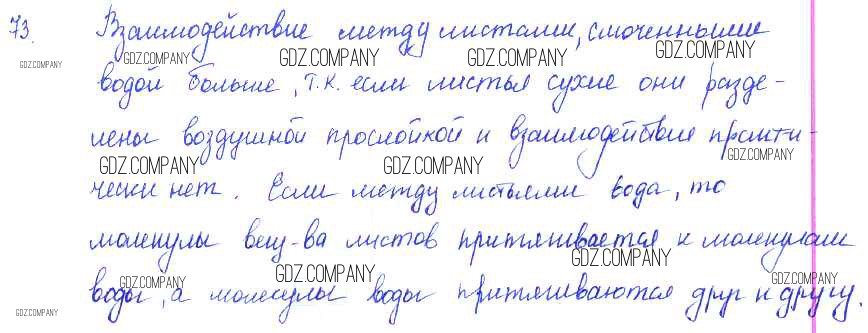 73. Взаимодействие между листами, смоченными
GDZ.COMPANY GDZ.COMPANY GDZ.COMPANY GDZ.COMPANY GDZ.COMPANY
водой больше, т.к. если листья сухие они разде-
лены воздушной прослойкой и взаимодействия практи-
GDZ.COMPANY GDZ.COMPANY GDZ.COMPANY
чески нет. Если между листьями вода, то
молекулы вещ-ва листов притягивается к молекулам
GDZ.COMPANY GDZ.COMPANY GDZ.COMPANY GDZ.COMPANY
воды, а молекулы воды притягиваются друг к другу.
GDZ.COMPANY